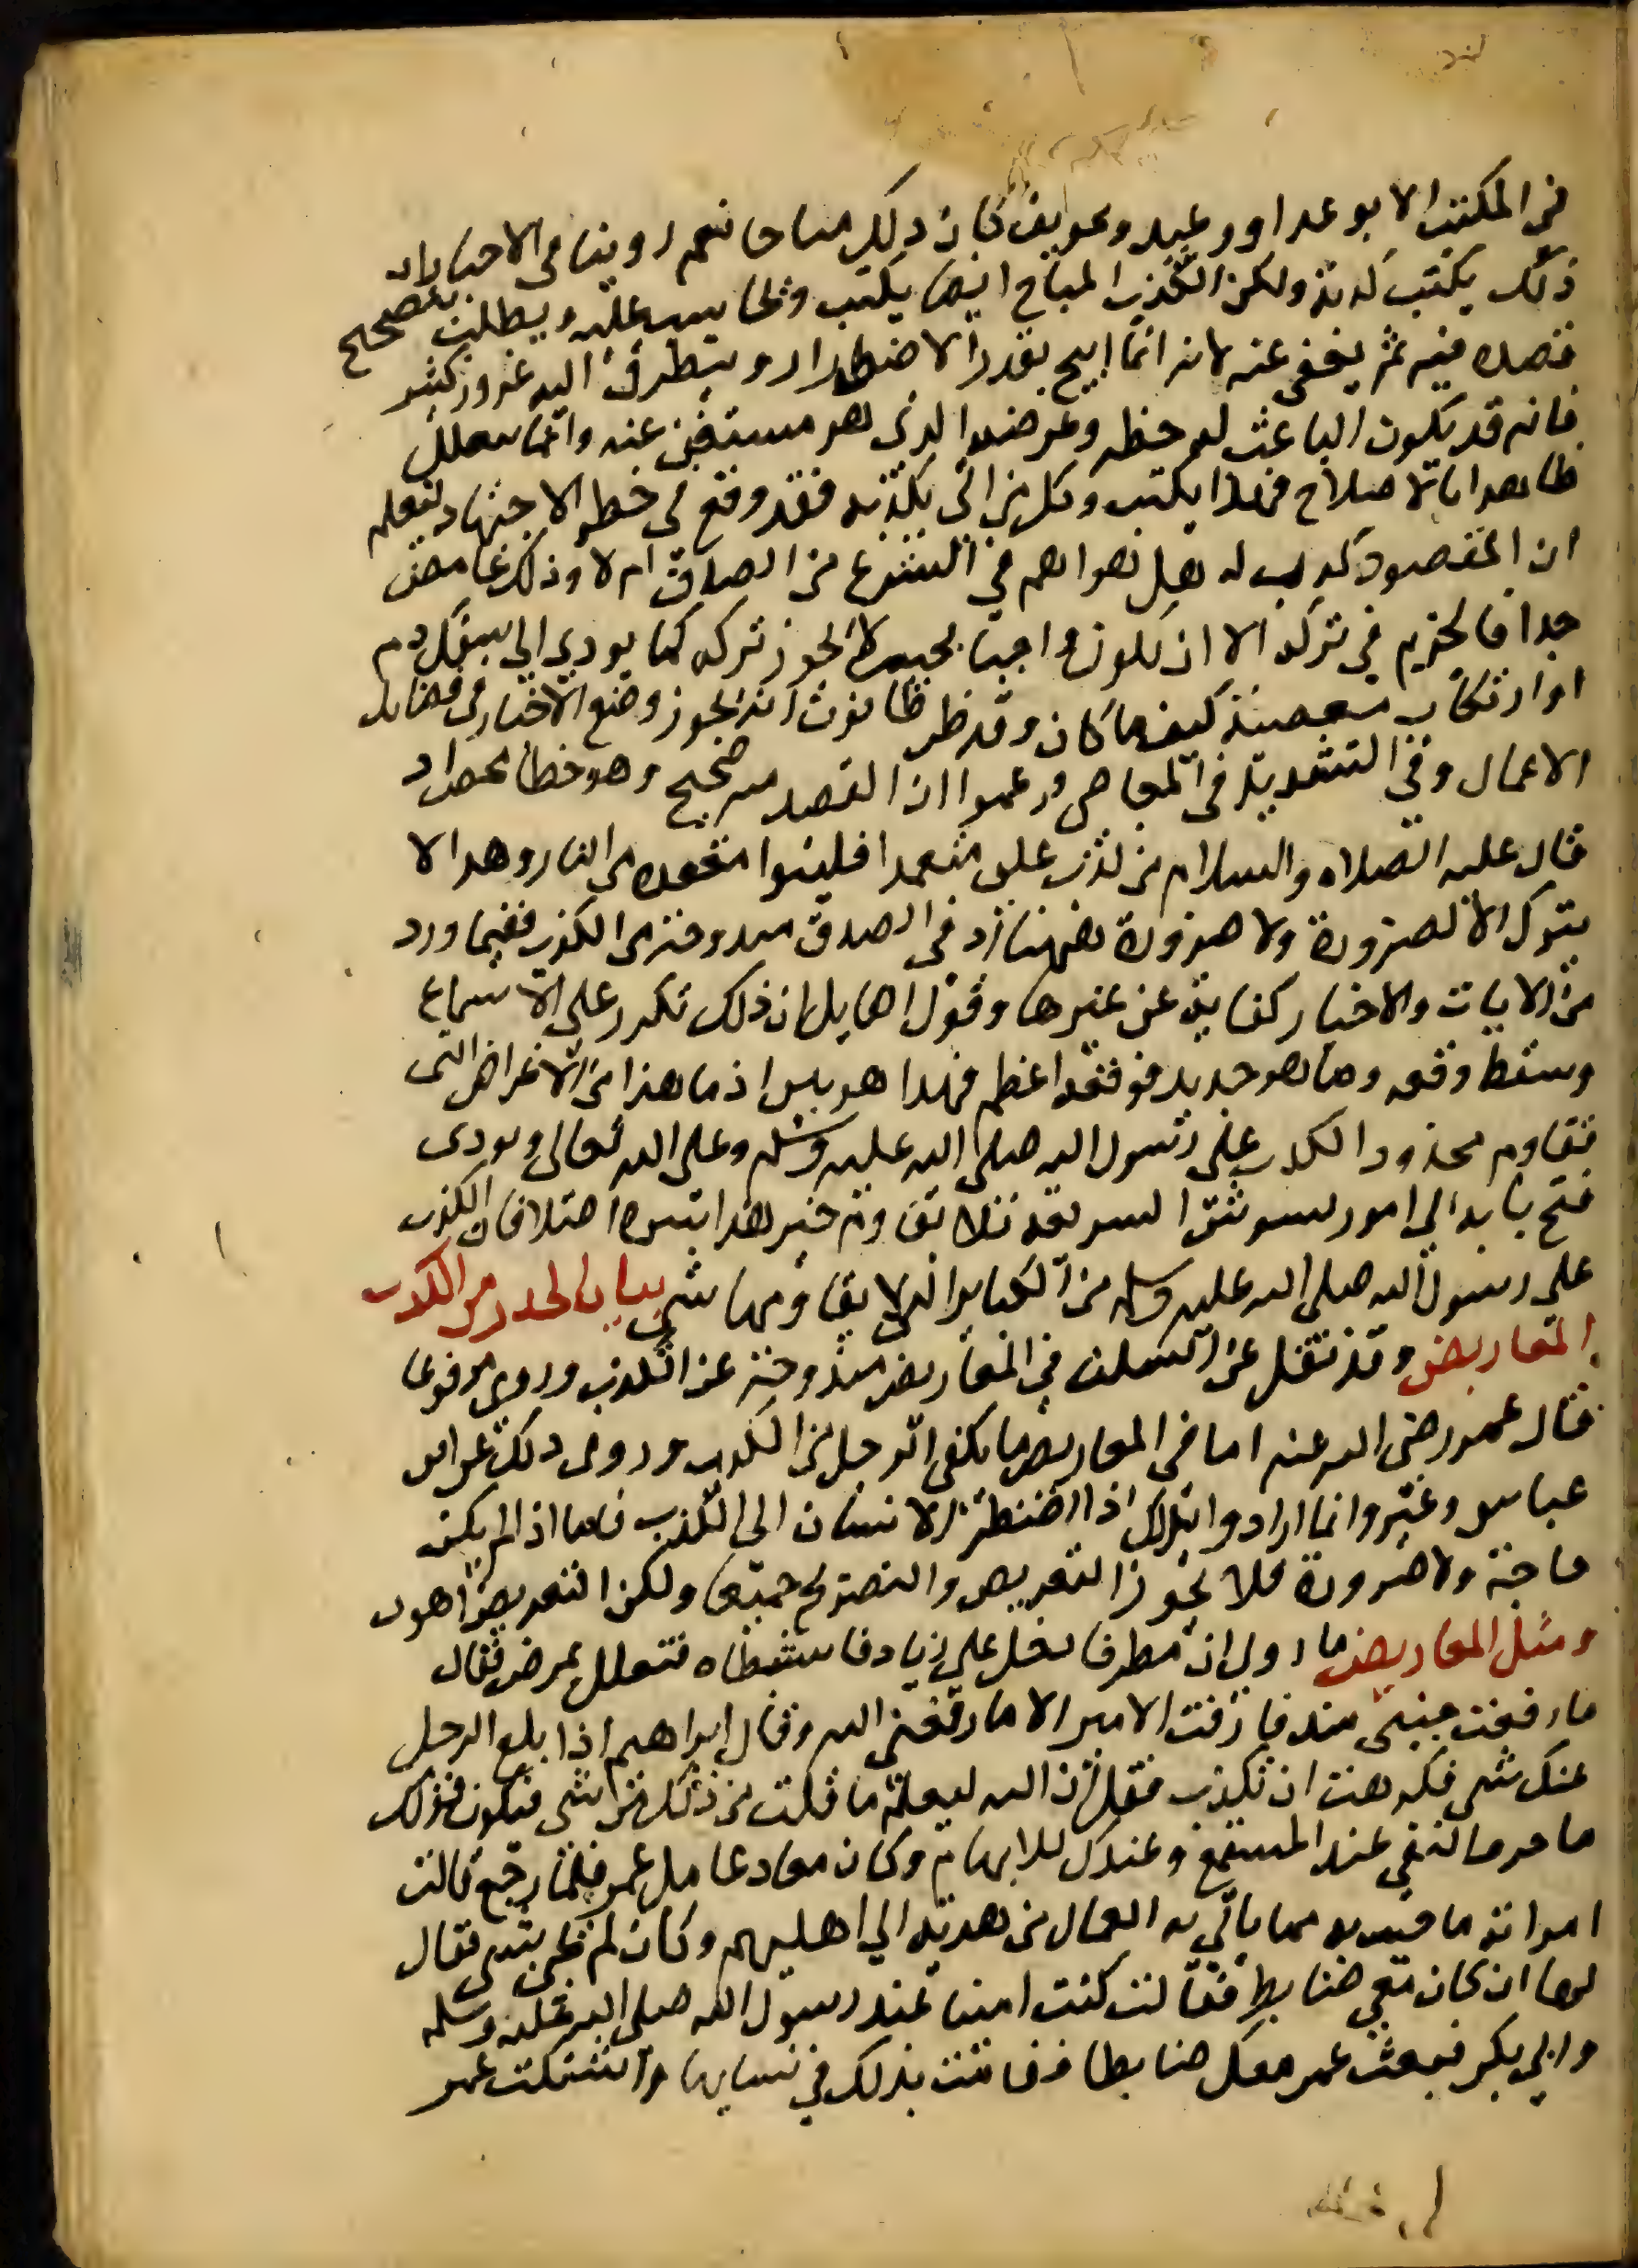 في المكتب الا بوعد او وعيد وتخويف كان ذلك مباحا نعم روينا في الاخبار ان
ذلك يكتب كذبة ولكن الكذب المباح ايضا يكتب ويحاسب عليه ويطلب بتصحيح
قصده فيه ثم يعفى عنه لانه انما ابيح بقدر الاضطرار ويتطرق اليه غرور كثير
فانه قد يكون الباعث له حظه وغرضه الذي هو مستغن عنه وانما يتعلل
ظاهرا بالاصلاح فلهذا يكتب وكل من اتى بكذبة فقد وقع في خطر الاجتهاد ليعلم
ان المقصود كذب له هل هو اهم في الشرع من الصدق ام لا وذلك غامض
جدا فالحزم في تركه الا ان يكون واجبا بحيث لا يجوز تركه كما يودي الى سفك دم
او ارتكاب معصية كيف ما كان وقد ظن ظانون انه يجوز وضع الاخبار في فضايل
الاعمال وفي التشديد في المعاصي وزعموا ان القصد منه صحيح وهو خطا محض اد
قال عليه الصلاه والسلام من كذب علي متعمدا فليتبوا مقعده من النار وهدا لا
يترك الا لضرورة ولا ضرورة ههنا اذ في الصدق مندوحة من الكذب ففيما ورد
من الايات والاخبار كفاية عن غيرها وقول القايل ان ذلك تكرر على الاسماع
وسقط وقعه وما هو جديد فوقعه اعظم فهدا هوس اذ ما هذا من الاغراض التي
تقاوم محذور الكذب على رسول الله صلى الله عليه وسلم وعلى الله تعالى ويودي
فتح بابه الي امور تشوش الشريعة فلا يقاوم خير هذا بشره اصلا فان الكذب
على رسول الله صلى الله عليه وسلم من الكباير التي لا يقاومها شي بيان الحذر من الكذب
بالمعاريض وقد نقل عن السلف في المعاريض مندوحة عن الكذب وروي مرفوعا
فقال عمر رضي الله عنه اما في المعاريض ما يكفي الرجل من الكذب وروى دلك عن ابن
عباس وغيره وانما ارادوا بذلك اذا اضطر الانسان الى الكذب فاما اذا لم يكن
حاجة ولا ضرورة فلا يجوز التعريض والتصريح جميعا ولكن التعريض اهون
ومثل المعاريض ما روي ان مطرفا دخل على زياد فاستبطاه فتعلل بمرض فقال
ما رفعت جنبي منذ فارقت الامير الا ما رفعني الله وقال ابراهيم اذا بلغ الرجل
عنك شي فكرهت ان تكذب فقل ان الله ليعلم ما قلت من ذلك من شي فيكون قولك
ما حرف النفي عند المستمع وعندك للابهام وكان معاد عامل عمر فلما رجع قالت
امراته ما جيت به مما ياتي به العمال من هدية الي اهليهم وكان لم يجي بشي فقال
لها ان كان معي ضابط فقالت كنت امينا عند رسول الله صلى الله عليه وسلم
وابي بكر فبعث عمر معك ضابطا فقامت بذلك في نسايها واشتكت عمر